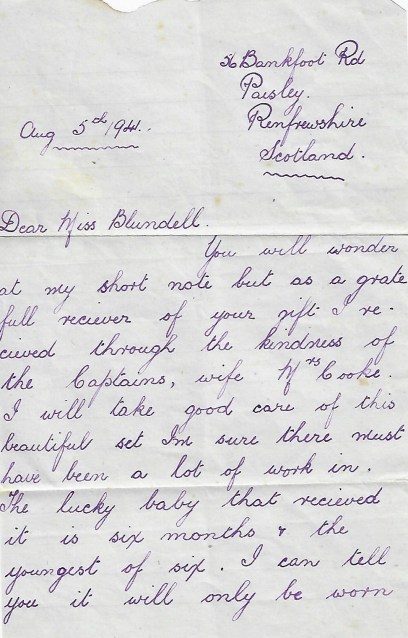 Bankfoot Rd
Paisley.
Renfrewshire
Scotland.
Aug 5th 1941.
Dear Miss Blundell.
You will wonder
at my short note but as a grate
full reciever of your gift I re-
cieved through the kindness of
the Captains, wife Mrs Cooke.
I will take good care of this
beautiful set Im sure there must
have been a lot of work in.
The lucky baby that recieved
it is six months & the
youngest of six. I can tell
you it will only be worn